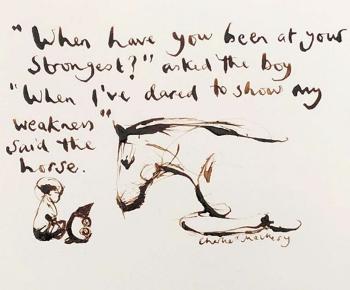 "When have you been at your
strongest?" asked the boy
"When I've dared to show my
weakness"
said the
horse.
Charlie Mackesy